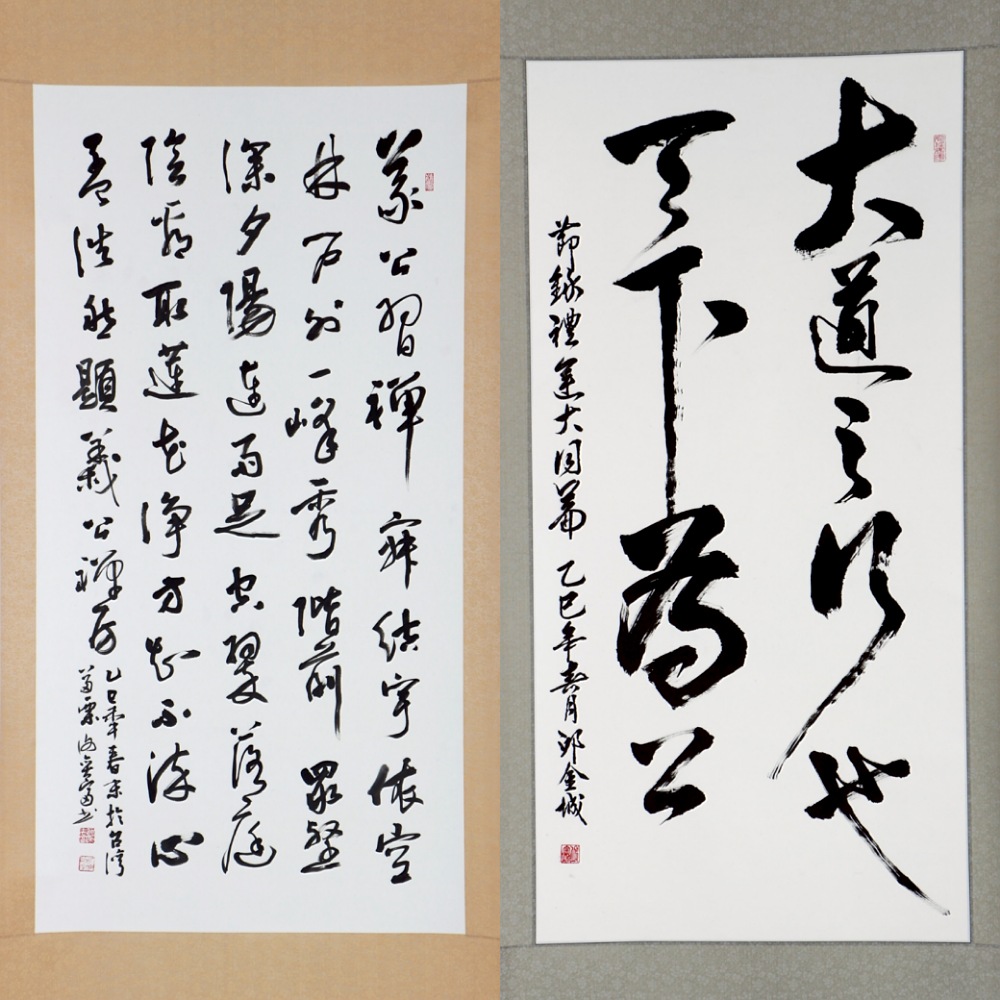 義公習禪寂結宇依空
林戶外一峰秀階前眾壑
深夕陽連雨足空翠落庭
陰看取蓮花淨方知不染心
孟浩然題義公禪房
乙巳年春末於台灣
大道之行也
天下為公
節錄禮運大同篇 乙巳年春月 邱金城